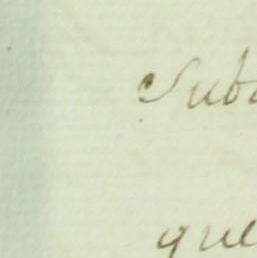 Suba
que